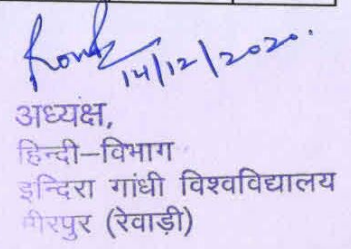 14/12/2020.
अध्यक्ष,
हिन्दी–विभाग
इन्दिरा गांधी विश्वविद्यालय
मीरपुर (रेवाड़ी)